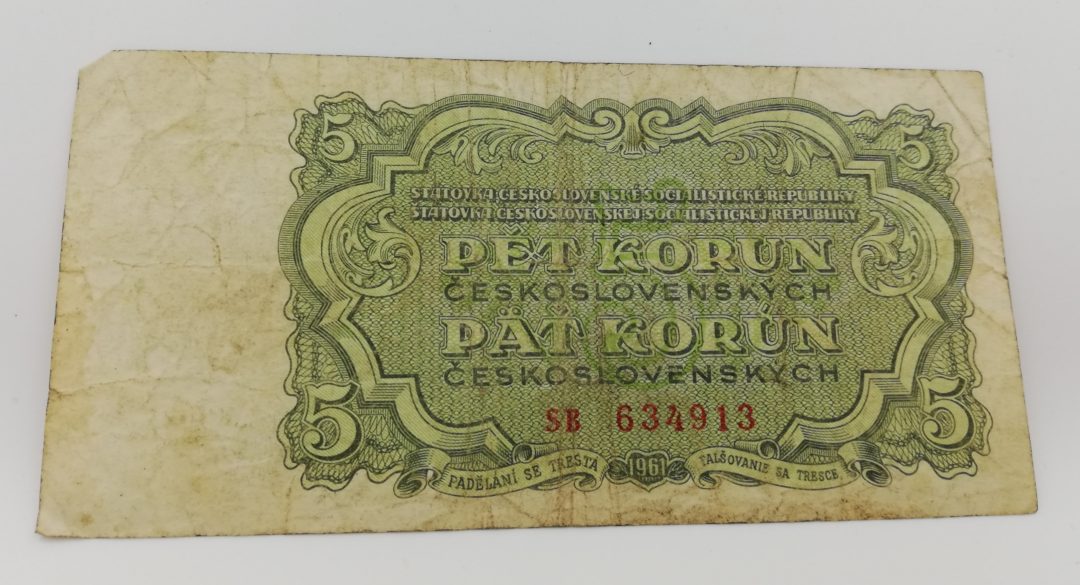 5 5
STÁTOVKA ČESKOSLOVENSKÉ SOCIALISTICKÉ REPUBLIKY
ŠTÁTOVKA ČESKOSLOVENSKEJ SOCIALISTICKEJ REPUBLIKY
PĚT KORUN
ČESKOSLOVENSKÝCH
PÄŤ KORÚN
ČESKOSLOVENSKÝCH
SB 634913
5 5
PADĚLÁNÍ SE TRESTÁ 1961 FALŠOVANIE SA TRESCE